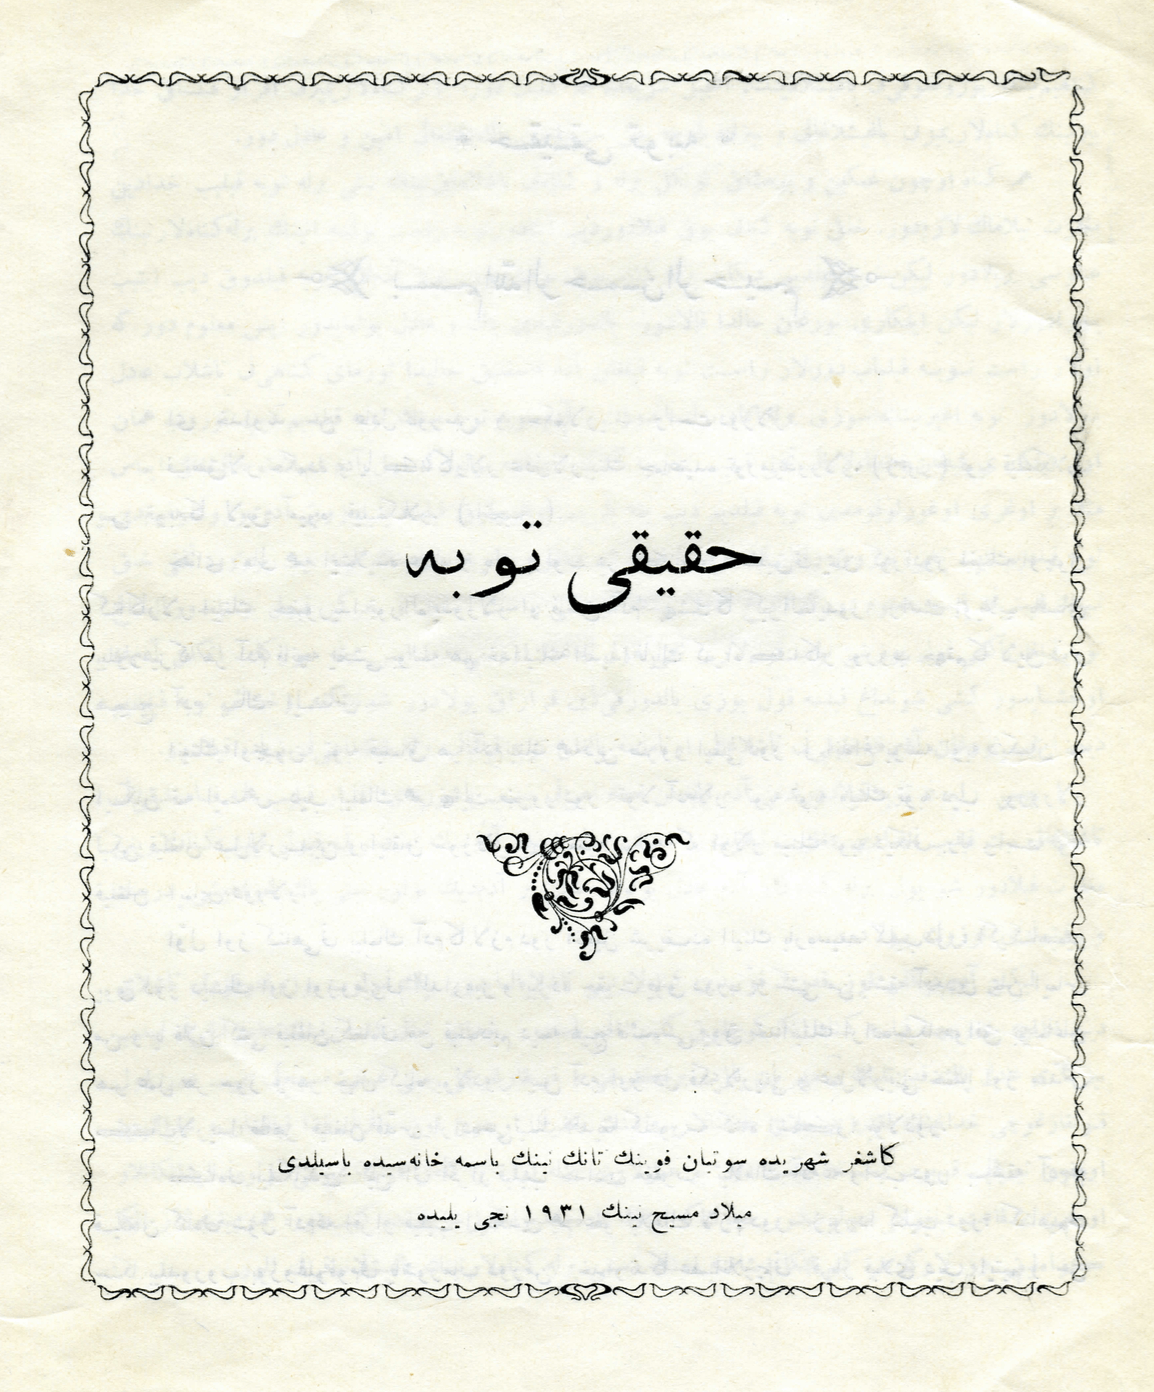 حقیقی توبه
كاشغر شهریده سوتبان فوینك تانك نینك باسمه خانه‌سیده باسیلدی
میلاد مسیح نینك ١٩٣١ نجی یلیده